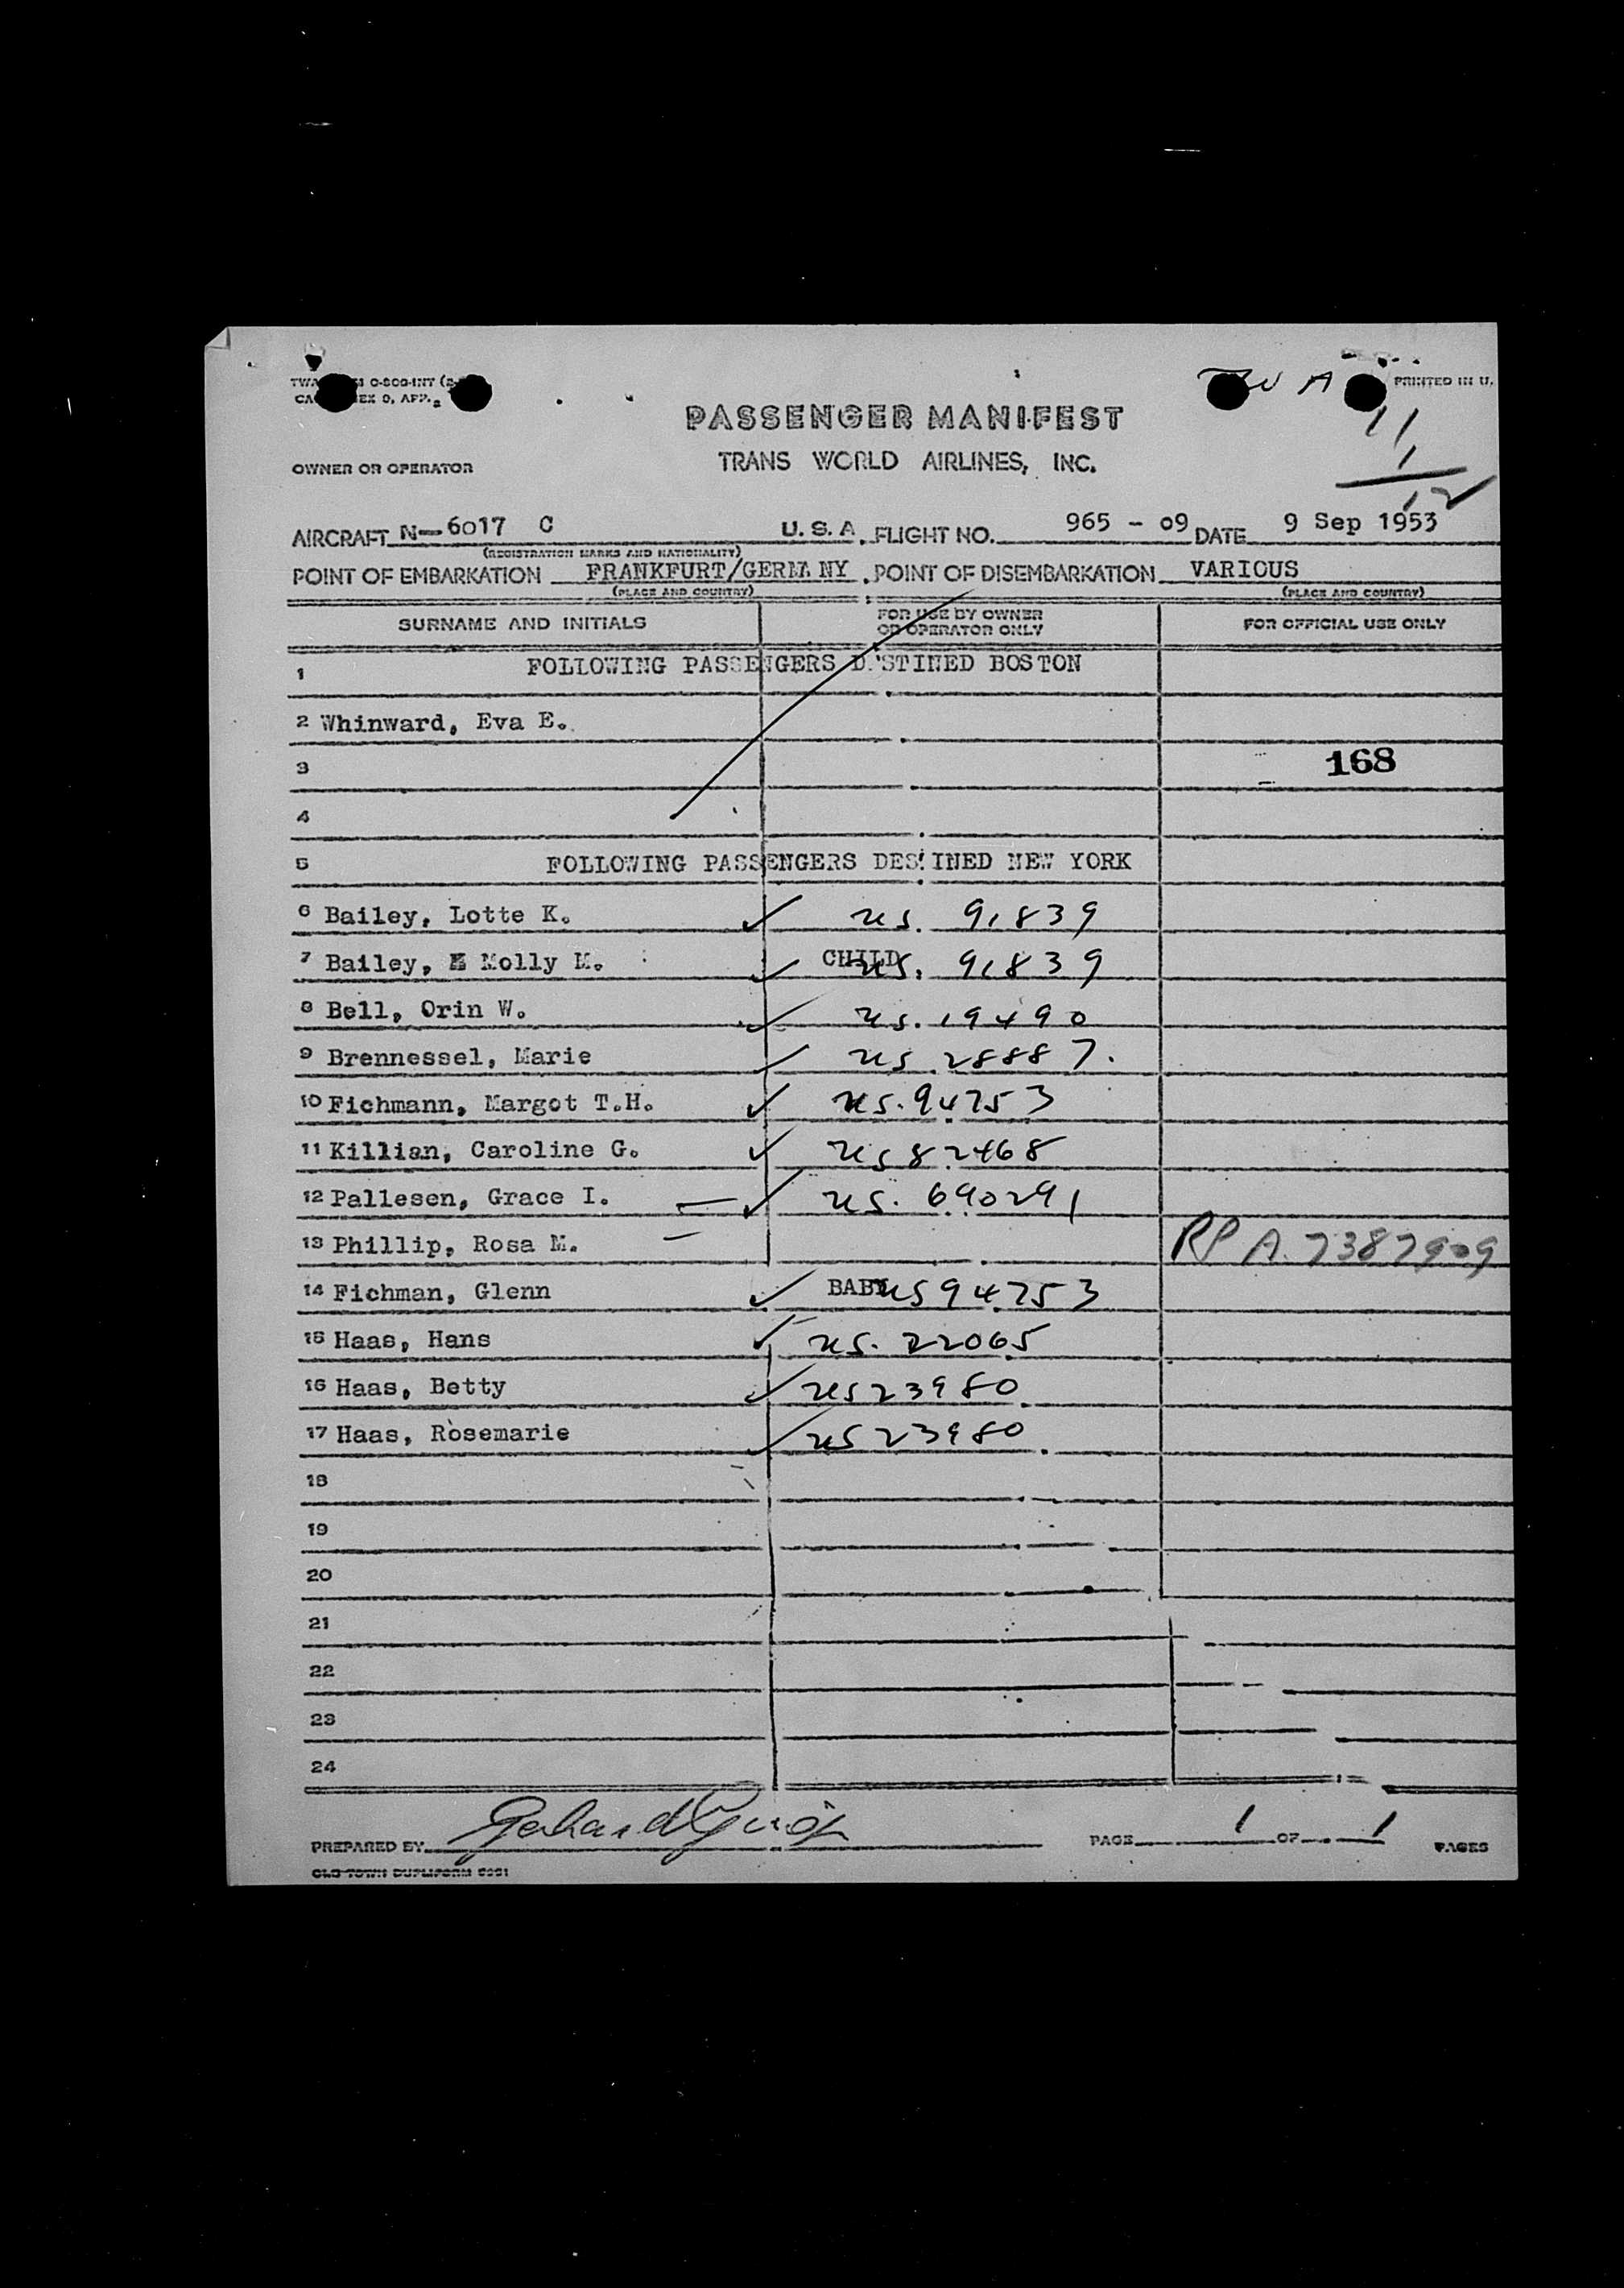 PRINTED IN U.
PASSENGER MANIFEST
11
OWNER OR OPERATOR TRANS WORLD AIRLINES, INC.
1
12
AIRCRAFT N-6017 C U. S. A. FLIGHT NO. 965 - 09 DATE 9 Sep 1953
(REGISTRATION MARKS AND NATIONALITY)
POINT OF EMBARKATION FRANKFURT/GERMANY. POINT OF DISEMBARKATION VARIOUS
(PLACE AND COUNTRY) (PLACE AND COUNTRY)
SURNAME AND INITIALS FOR USE BY OWNER OR OPERATOR ONLY FOR OFFICIAL USE ONLY
1 FOLLOWING PASSENGERS DESTINED BOSTON
2 Whinward, Eva E.
3 168
4
5 FOLLOWING PASSENGERS DESTINED NEW YORK
6 Bailey, Lotte K. ✓ us. 91839
7 Bailey, Molly M. ✓ CHILD us. 91839
8 Bell, Orin W. ✓ us. 19490
9 Brennessel, Marie ✓ us. 28887.
10 Fichmann, Margot T.H. ✓ us. 94753
11 Killian, Caroline G. ✓ us 82468
12 Pallesen, Grace I. — ✓ us. 690291
13 Phillip, Rosa M. — RP A. 7387909
14 Fichman, Glenn ✓ BABY us 94753
15 Haas, Hans ✓ us. 22065
16 Haas, Betty ✓ us 23980
17 Haas, Rosemarie ✓ us 23980
18
19
20
21
22
23
24
PREPARED BY PAGE 1 OF 1 PAGES
OLD TOWN DUPLIFORM